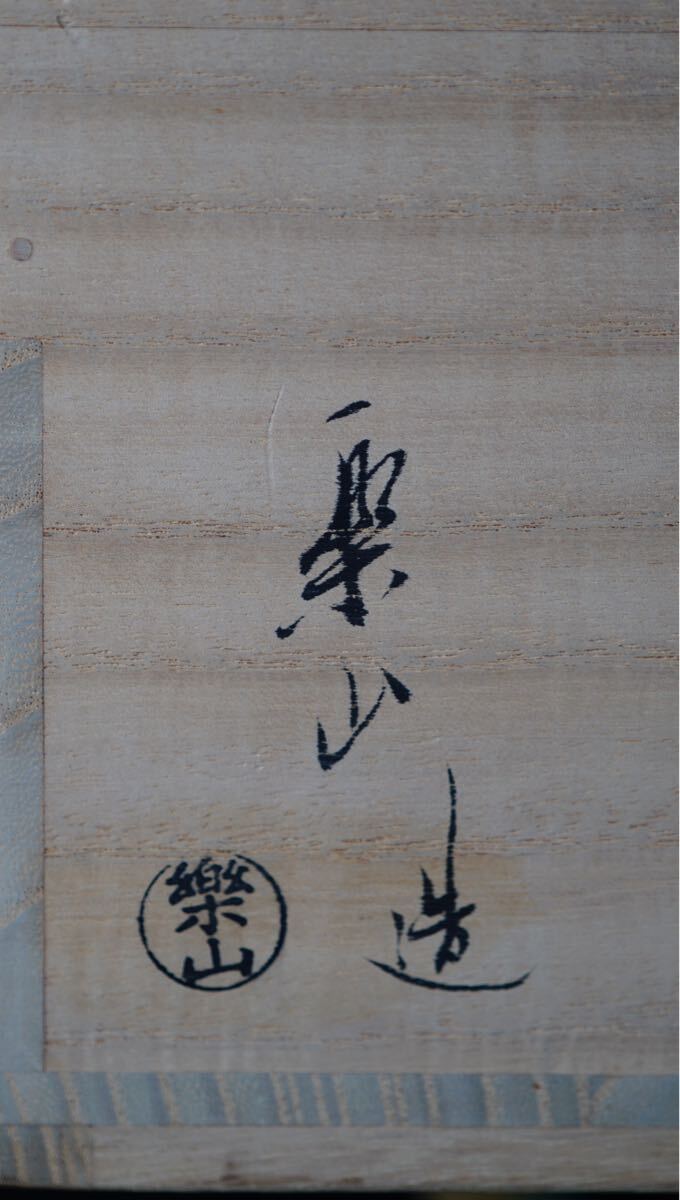 楽山
造
樂山